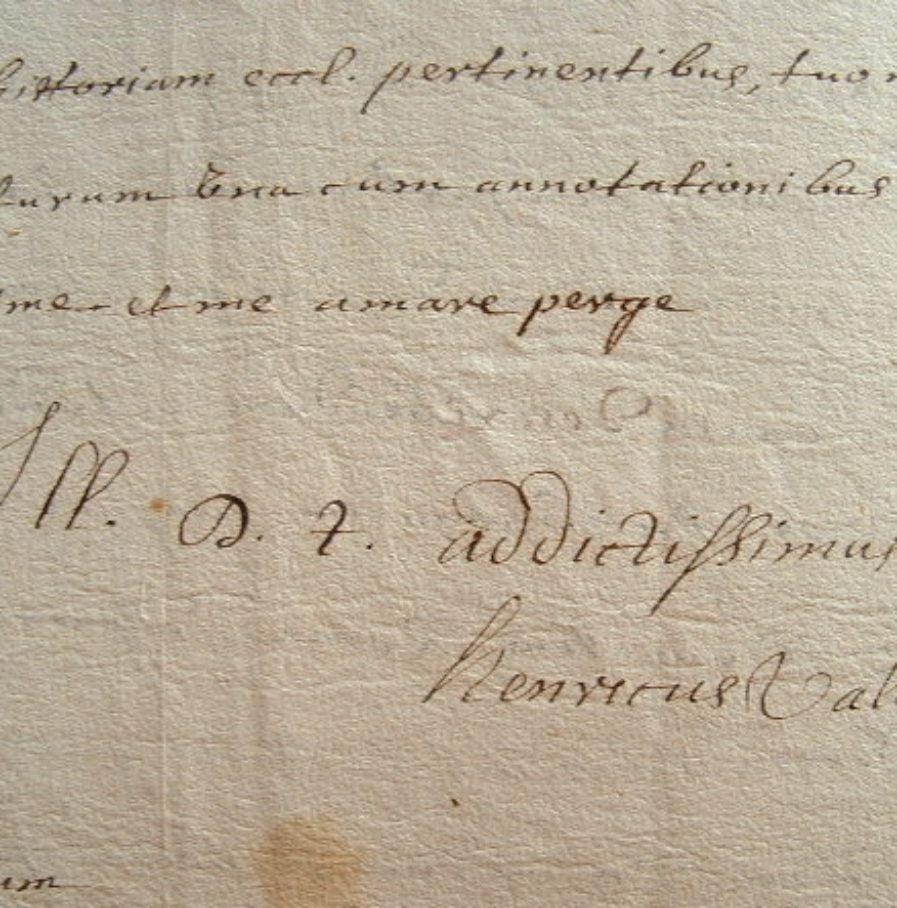 historiam eccl. pertinentibus, tuo
turum una cum annotationibus
me et me amare perge
Ill. D. T. addictissimus
Henricus Val
um